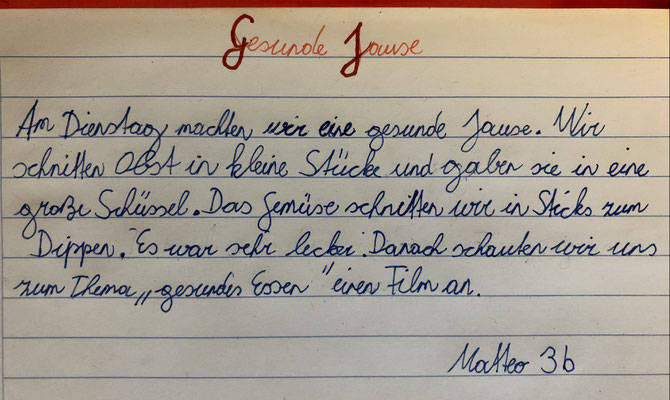 Gesunde Jause
Am Dienstag machten wir eine gesunde Jause. Wir
schnitten Obst in kleine Stücke und gaben sie in eine
große Schüssel. Das Gemüse schnitten wir in Sticks zum
Dippen. Es war sehr lecker. Danach schauten wir uns
zum Thema „gesundes Essen" einen Film an.
Matteo 3b